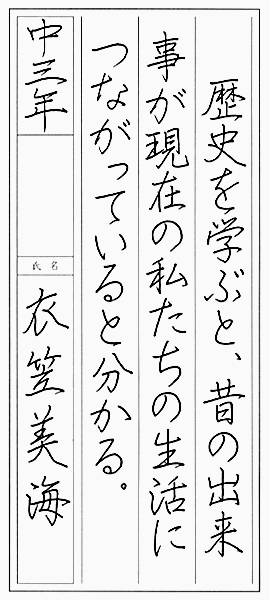 歴史を学ぶと、昔の出来
事が現在の私たちの生活に
つながっていると分かる。
中三年
氏名
衣笠美海